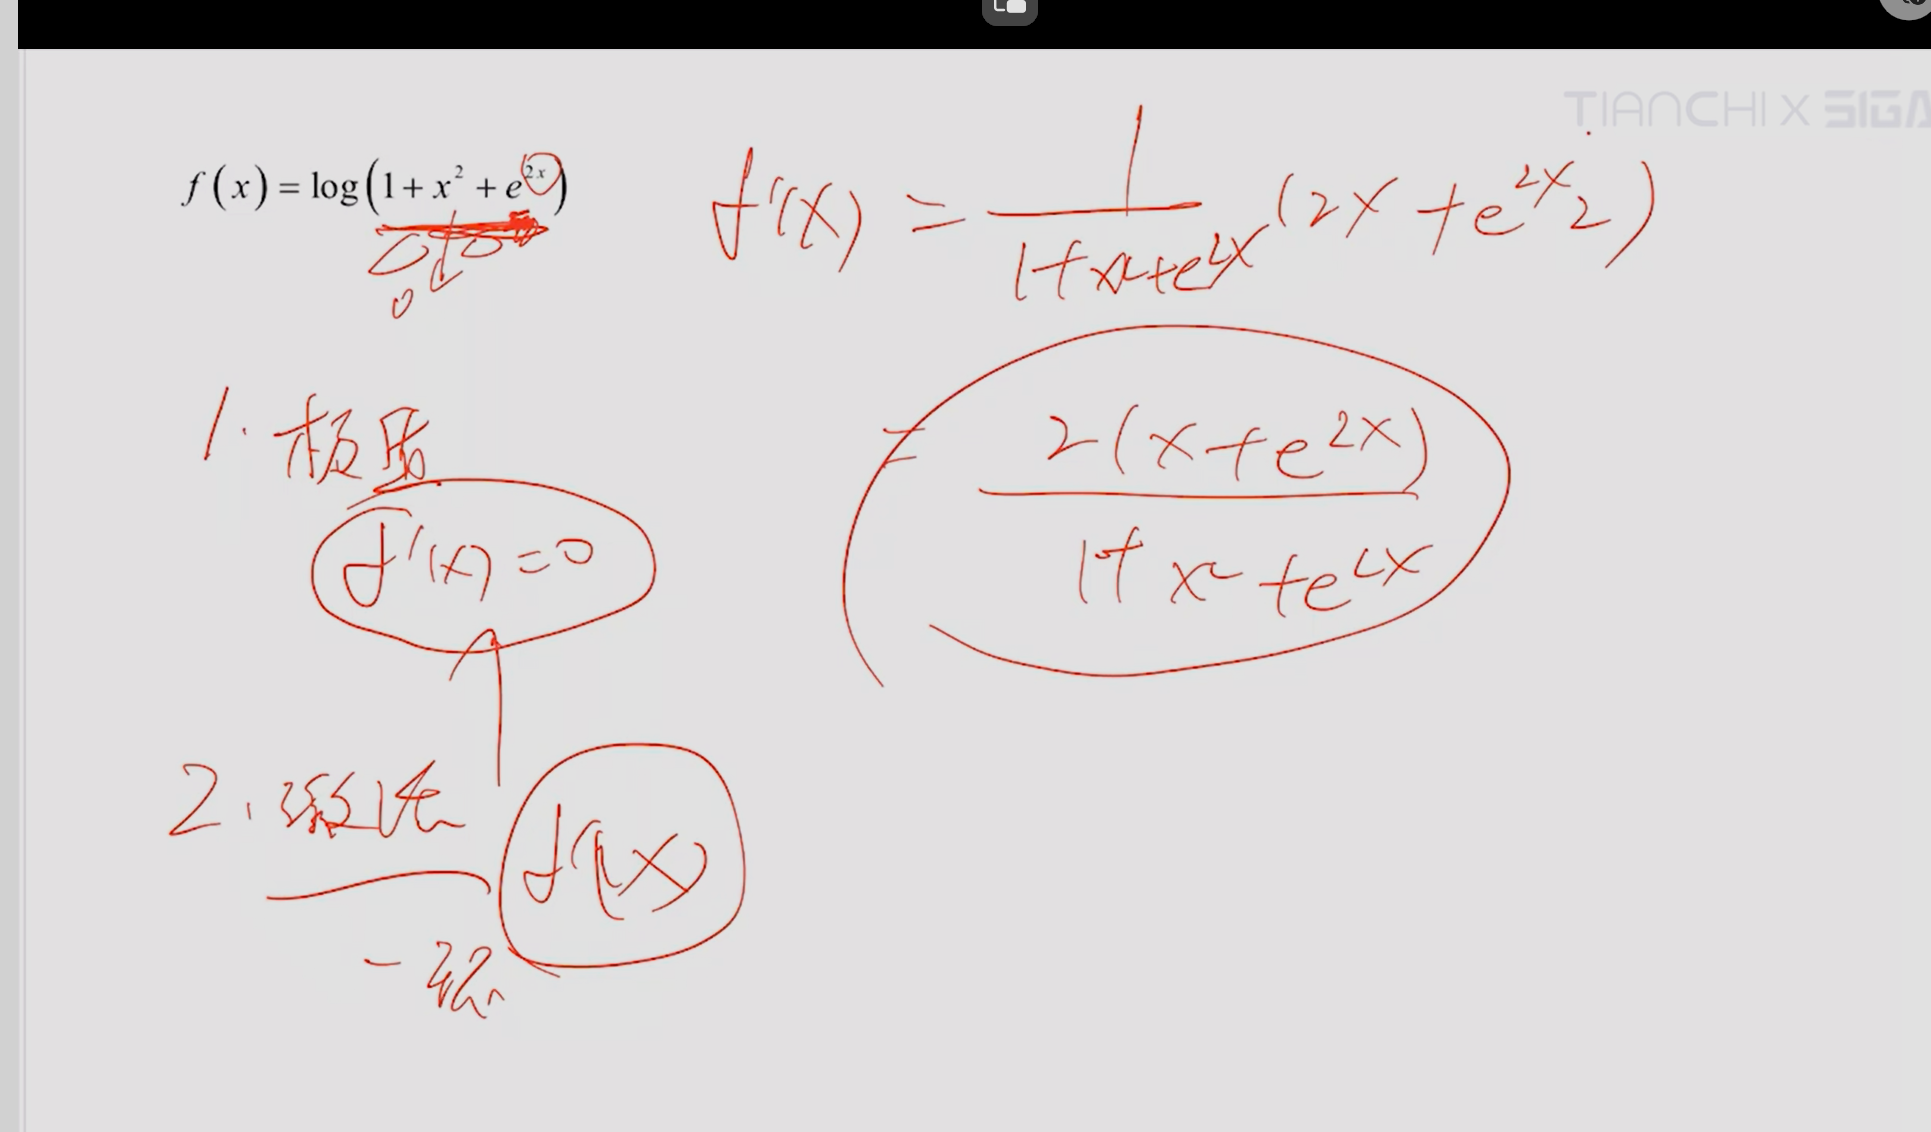 TIANCHI X SIGA
f(x) = log(1 + x² + e^{2x})
f'(x) = 1/(1+x²+e^{2x}) (2x + e^{2x} 2)
= 2(x+e^{2x})/(1+x²+e^{2x})
1. 极
f'(x) = 0
2.
f'(x)
一